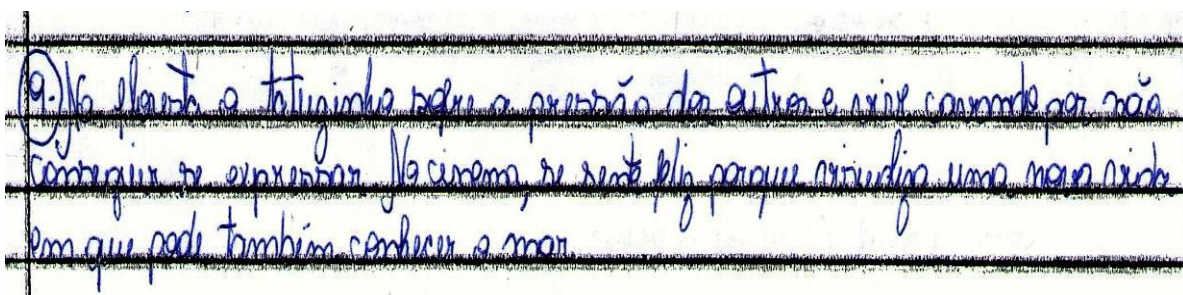 9.) Na floresta o tatuzinho sofre a pressão dos outros e vive cavando por não
conseguir se expressar. No cinema, se sente feliz porque visualiza uma nova vida
em que pode também conhecer o mar.